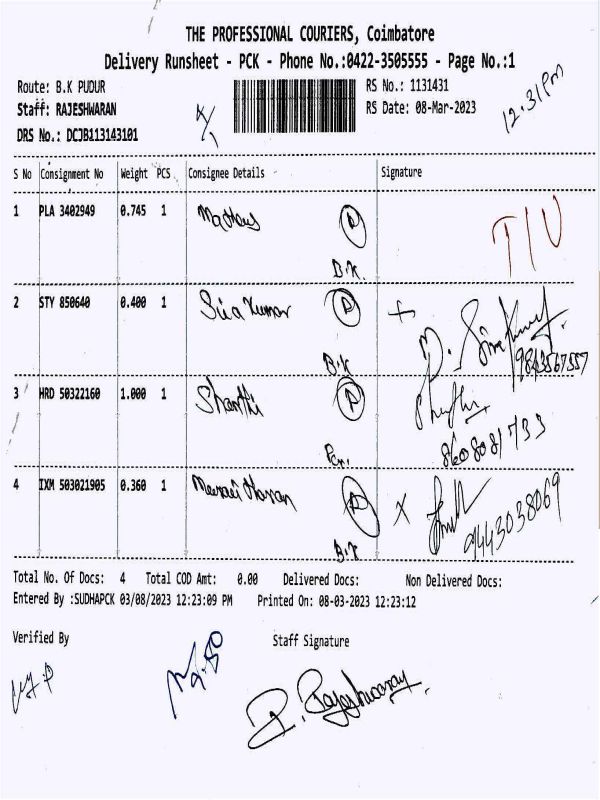 THE PROFESSIONAL COURIERS, Coimbatore
Delivery Runsheet - PCK - Phone No.:0422-3505555 - Page No.:1
Route: B.K PUDUR
RS No.: 1131431
12:31PM
Staff: RAJESHWARAN
RS Date: 08-Mar-2023
DRS No.: DCJB113143101
S No Consignment No Weight PCS Consignee Details Signature
1 PLA 3402949 0.745 1 P T/U
B.K.
2 STY 850640 0.400 1 Siva Kumar P
B.K 9843567557
3 HRD 50322160 1.000 1 Shanthi P
8608081733
4 IXM 503021905 0.360 1 P X
B.K 9443038069
Total No. Of Docs: 4 Total COD Amt: 0.00 Delivered Docs: Non Delivered Docs:
Entered By :SUDHAPCK 03/08/2023 12:23:09 PM Printed On: 08-03-2023 12:23:12
Verified By Staff Signature
9.50
P. Rajeshwaran